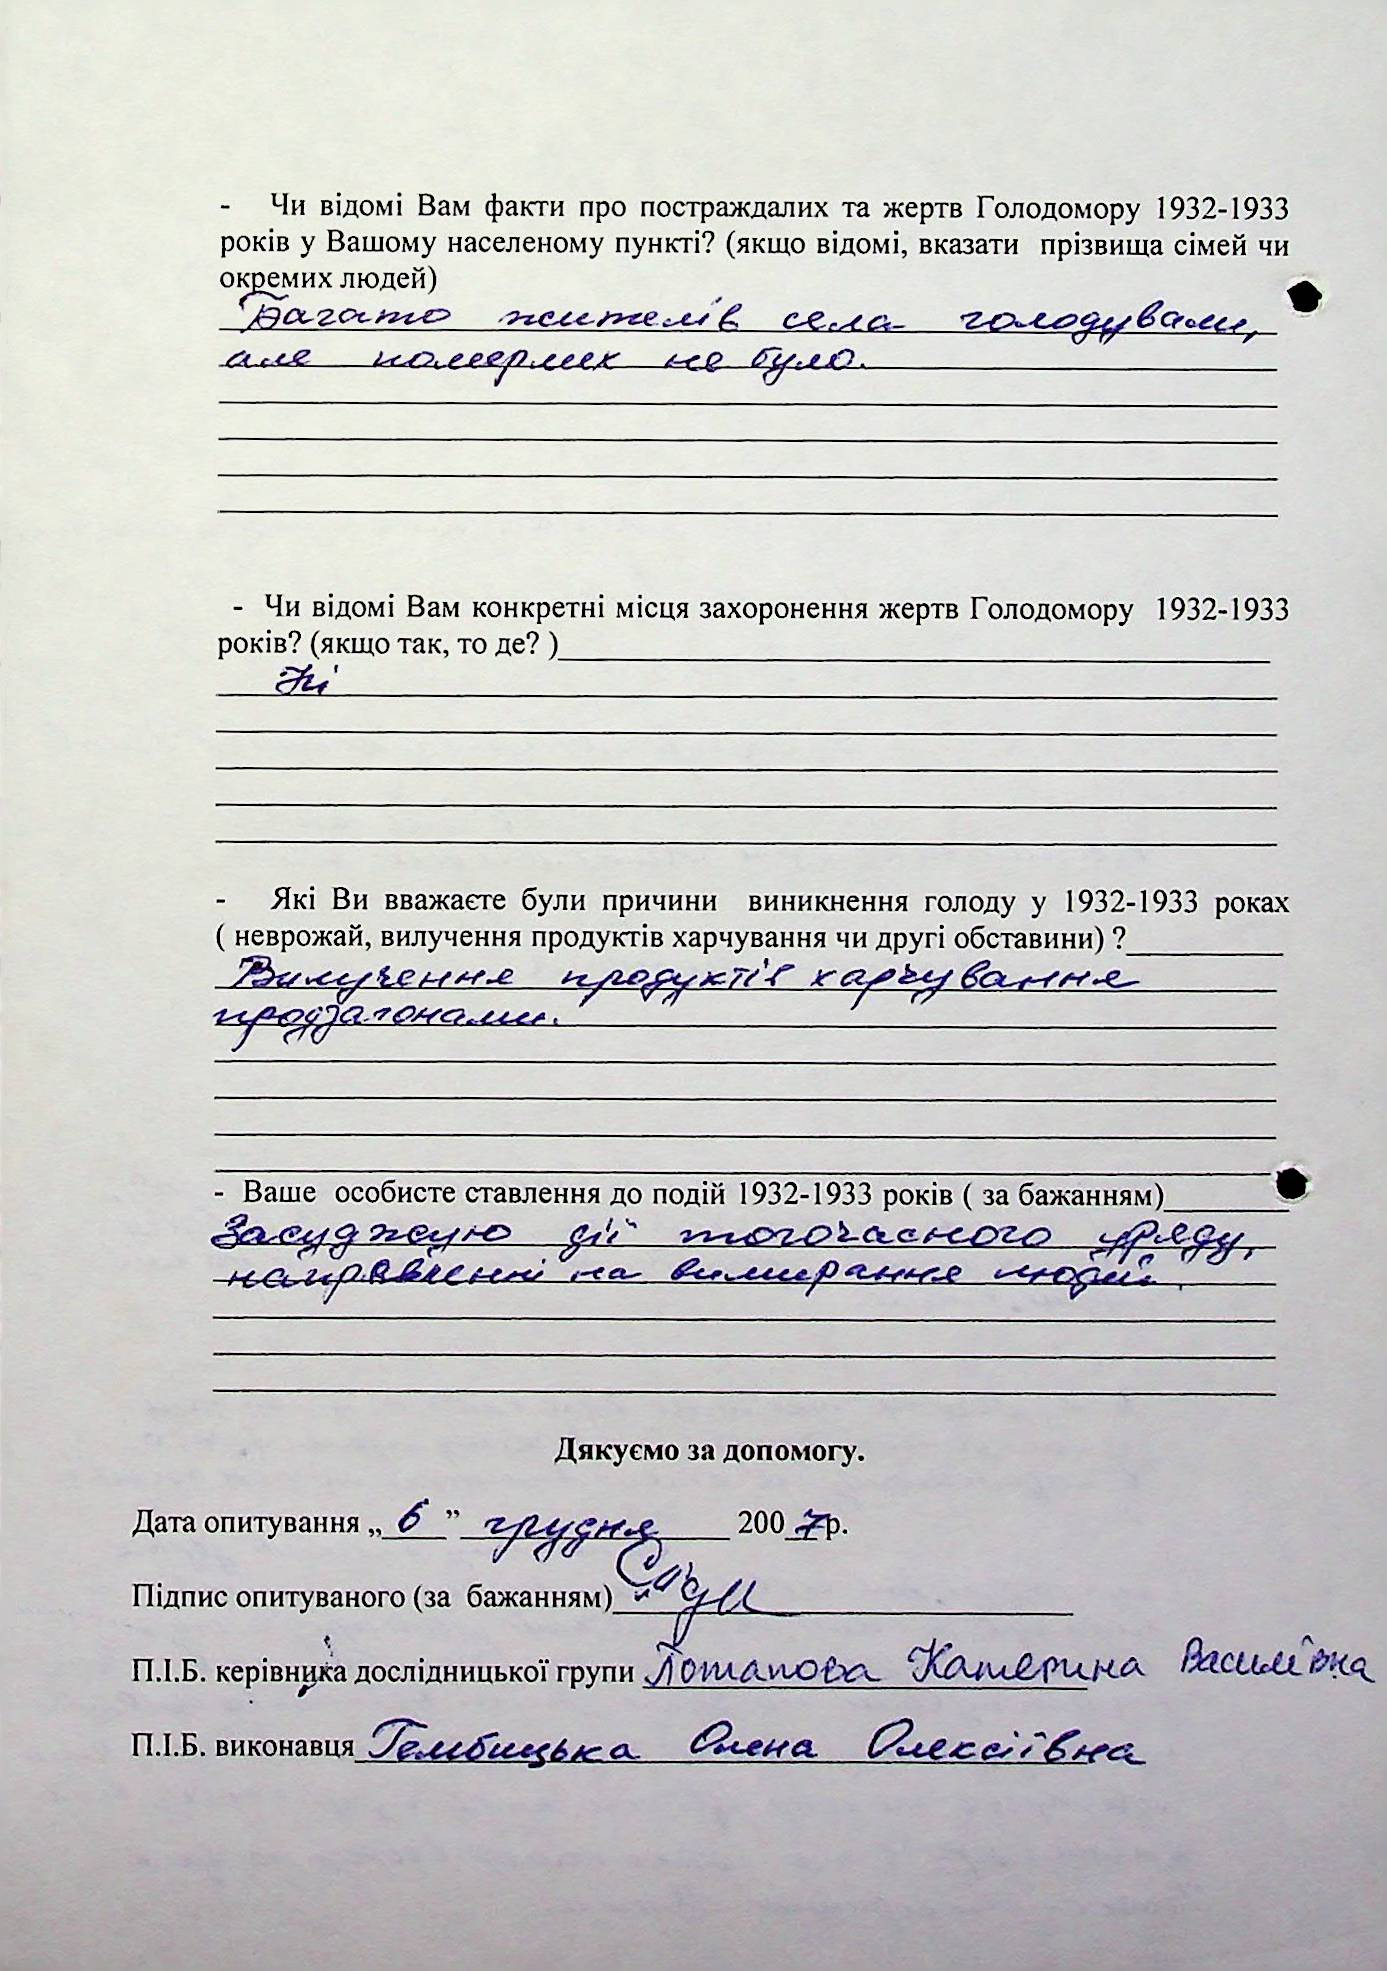 - Чи відомі Вам факти про постраждалих та жертв Голодомору 1932-1933
років у Вашому населеному пункті? (якщо відомі, вказати прізвища сімей чи
окремих людей)
Багато жителів села голодували,
але померлих не було.
- Чи відомі Вам конкретні місця захоронення жертв Голодомору 1932-1933
років? (якщо так, то де? )
Ні
- Які Ви вважаєте були причини виникнення голоду у 1932-1933 роках
( неврожай, вилучення продуктів харчування чи другі обставини) ?
Вилучення продуктів харчування
продзагонами.
- Ваше особисте ставлення до подій 1932-1933 років ( за бажанням)
Засуджую дії тогочасного уряду,
направленні на вимирання людей.
Дякуємо за допомогу.
Дата опитування „ 6 ” грудня 2007р.
Підпис опитуваного (за бажанням)
П.І.Б. керівника дослідницької групи Потапова Катерина Василівна
П.І.Б. виконавця Гембицька Олена Олексіївна